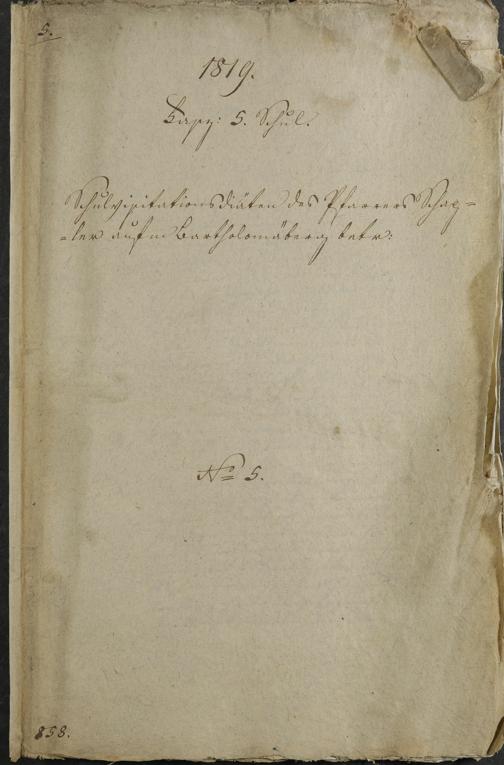 5.
1819.
Fasz: 5. Schul.
Schulvisitationsdiäten des Pfarrers Schap=
=ler auf'm Bartholomäberg betr:
No 5.
858.